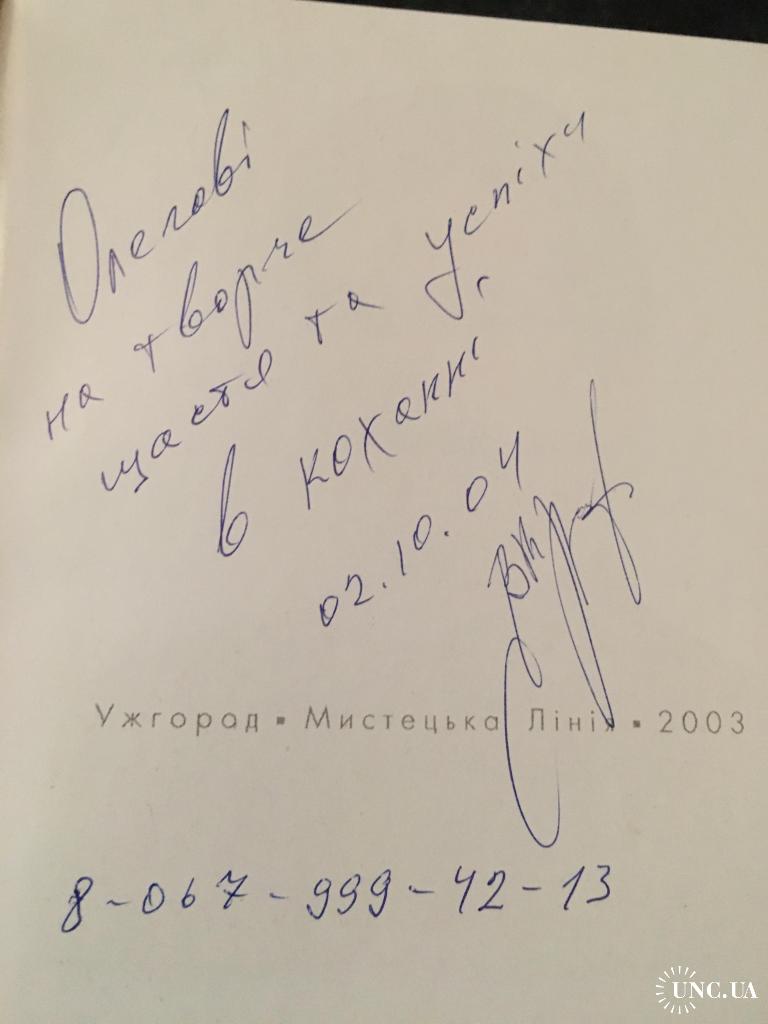 Олегові
на творче
щастя та успіхи
в коханні
02.10.04
Ужгород ▪ Мистецька Лінія ▪ 2003
8-067-999-42-13
UNC.UA